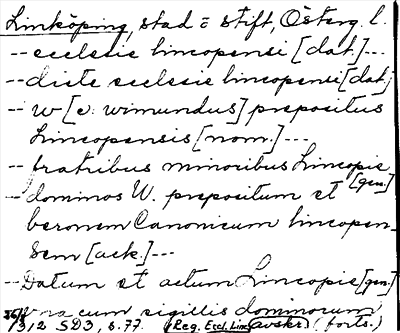 Linköping, stad o stift, Österg. l.
-- ecclesie lincopensi [dat.] ---
-- dicte ecclesie lincopensi [dat.]
-- W [o: wimundus] prepositus
Lincopensis [nom.] ---
-- fratribus minoribus Lincopie [gen.]
-- dominos W. prepositum et
beronem Canonicum lincopen-
sem [ack.] ---
-- Datum et actum Lincopie [gen.]
vna cum sigillis dominorum
3/2 SD3, s. 77. (Reg. Eccl. Linc. avskr.) (forts.)